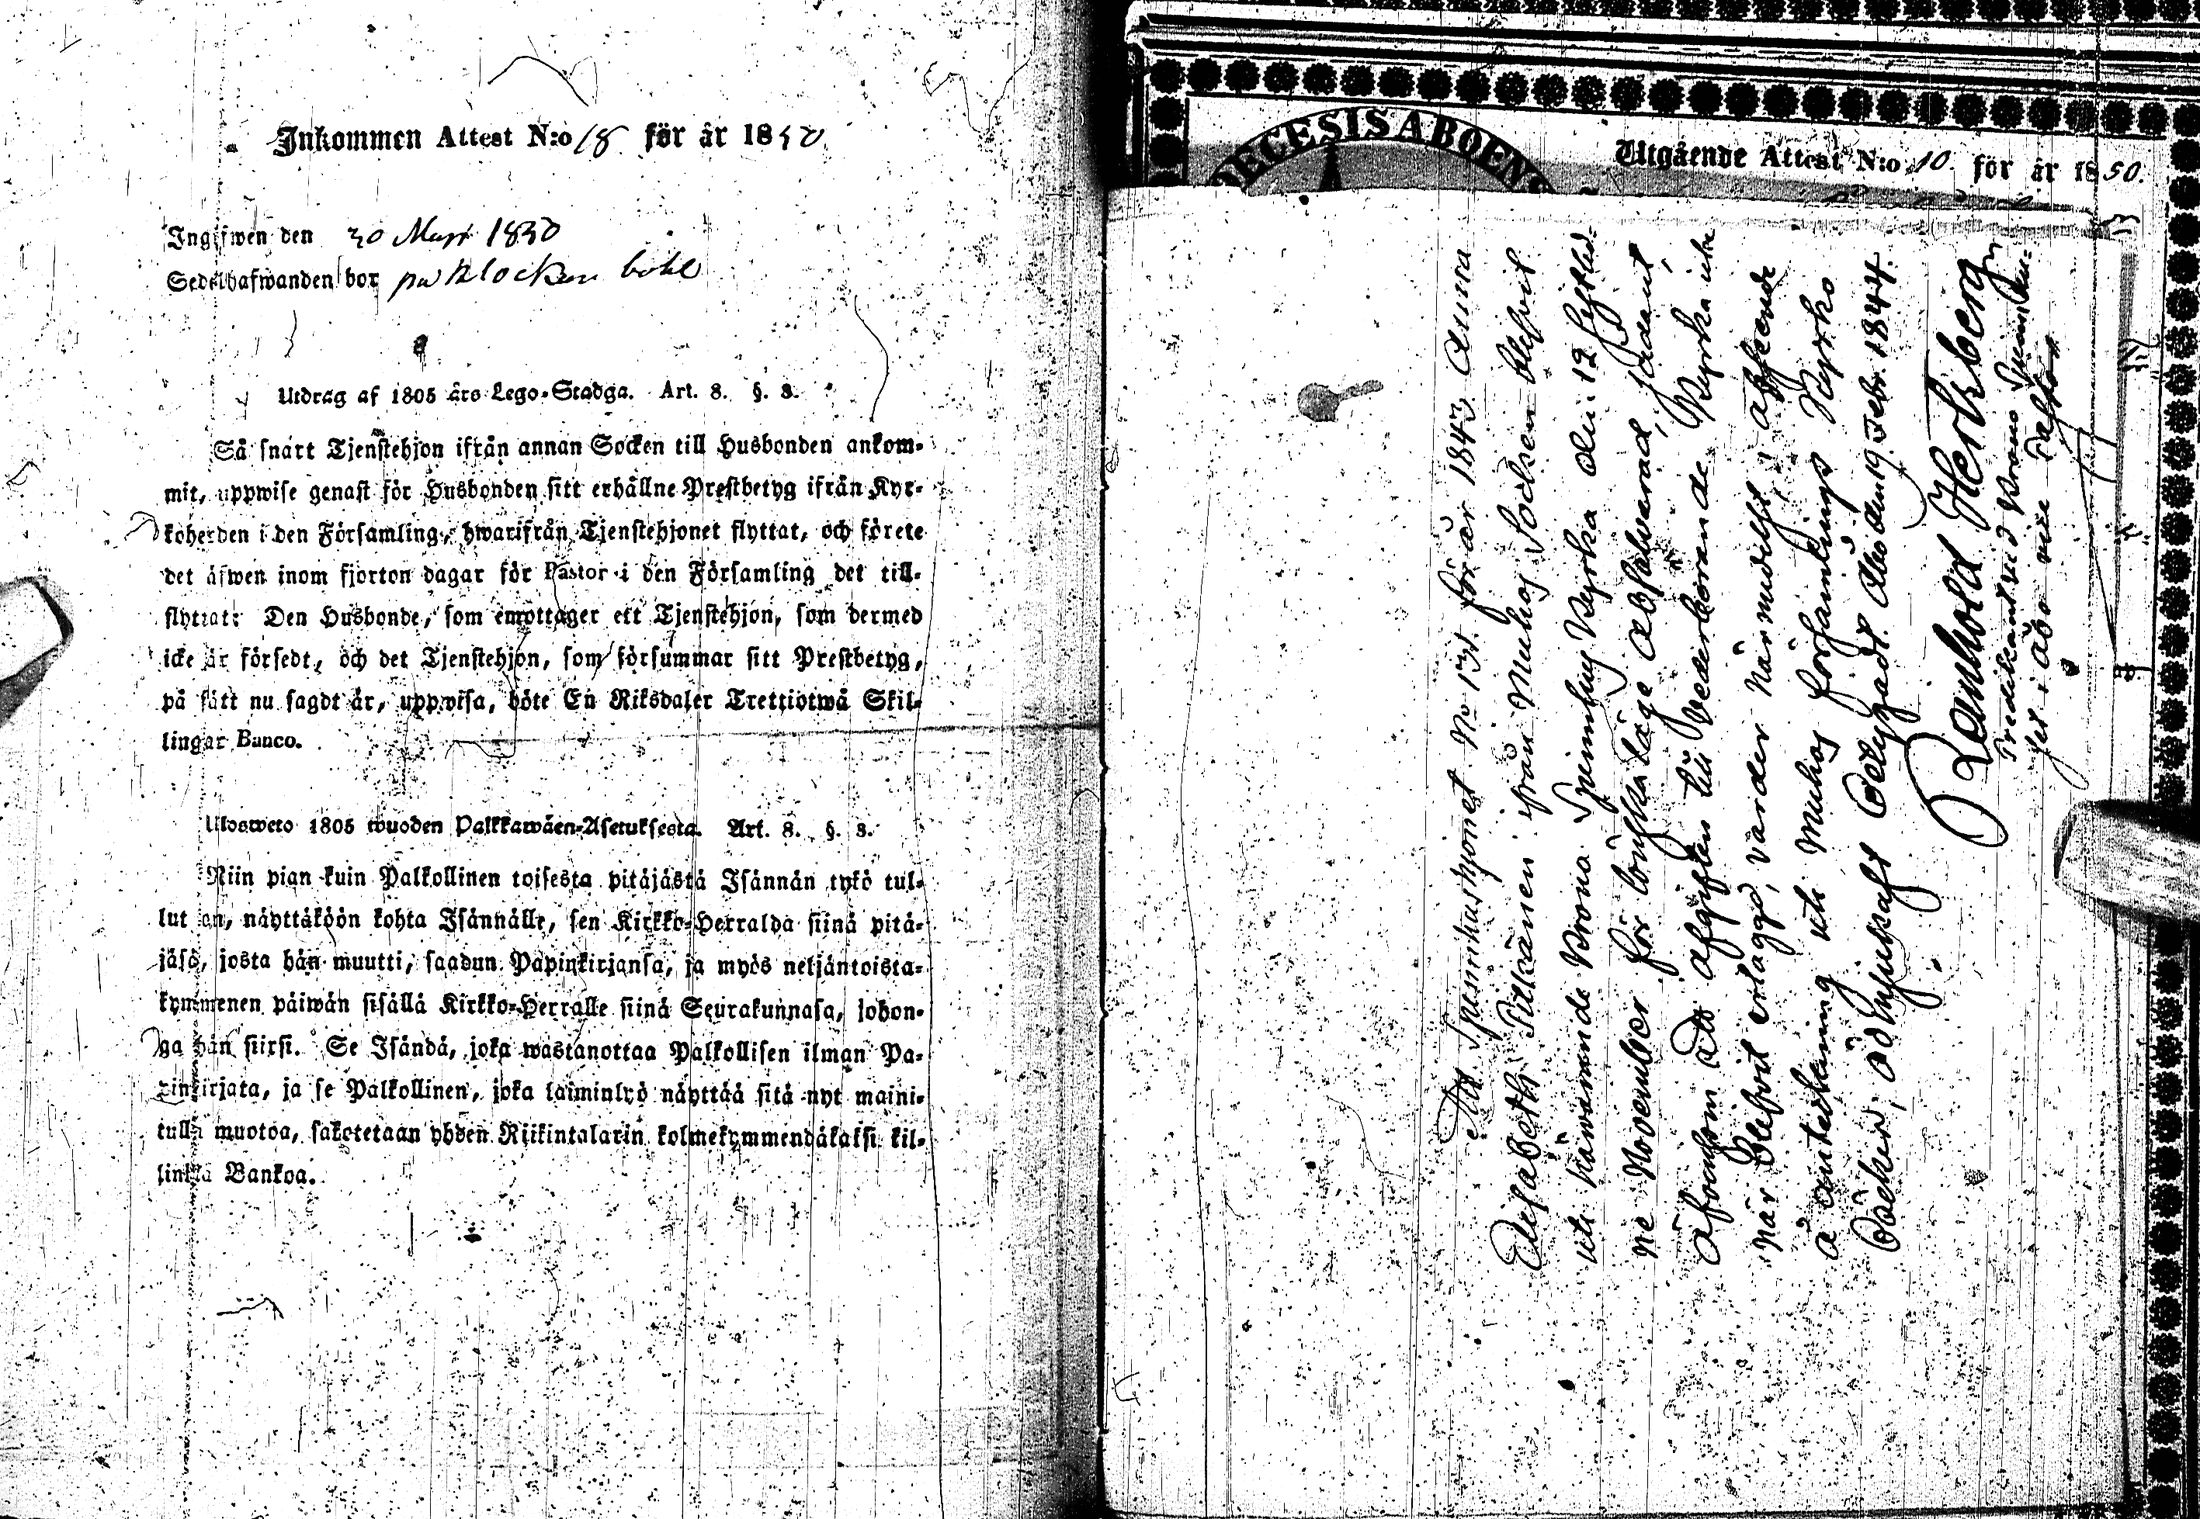 Inkommen Attest N:o 18 för år 1850
Ingifwen den 30 Mars 1850
Sedelhafwanden bor på Klockare bohl
Utdrag af 1805 års Lego-Stadga. Art. 8. §. 3.
Så snart Tjenstehjon ifrån annan Socken till Husbonden ankom-
mit, uppwise genast för Husbonden sitt erhållne Prestbetyg ifrån Kyr-
koherden i den Församling, hwarifrån Tjenstehjonet flyttat, och förete
det äfwen inom fjorton dagar för Pastor i den Församling det till-
flyttat: Den Husbonde, som emottager ett Tjenstehjon, som dermed
icke är försedt, och det Tjenstehjon, som försummar sitt Prestbetyg,
på sätt nu sagdt är, uppwisa, böte En Riksdaler Trettiotwå Skil-
lingar Banco.
Ulosweto 1805 wuoden Palkkawäen-Asetuksesta. Art. 8. §. 3.
Niin pian kuin Palkollinen toisesta pitäjästä Isännän tykö tul-
lut on, näyttäköön kohta Isännälle, sen Kirkko-Herralda siinä pitä-
jäsä, josta hän muutti, saadun Papinkirjansa, ja myös neljäntoista-
kymmenen päiwän sisällä Kirkko-Herralle siinä Seurakunnasa, johon-
ga hän siirsi. Se Isändä, joka wastanottaa Palkollisen ilman Pa-
pinkirjata, ja se Palkollinen, joka laiminlyö näyttää sitä nyt maini-
tulla muotoa, sakotetaan yhden Riikintalarin kolmekymmendäkaksi kil-
linkiä Bankoa.
DECESIS ABOENS
Utgående Attest N:o 10. för år 1850.
Att Spinnhushjonet No 131 för år 1843 Anna
Elisabeth Pitkänen ifrån Muhos Sochen blefvit
uti härwarande Krono Spinnhus Kyrka den 12 sistlid-
ne November för lönskaläge Absolverad, sådant,
äfvensom att afgiften till vederbörande Kyrka icke
när blefvit erlaggd, varder härmedelst, i afseende
å anteckning uti Muhos församlings Kyrko
Böcker, ödmjukast betygadt. Åbo den 19 Febr. 1844.
Reinhold Hertzberg
Predikant vid Krono Spinnhu-
set i Åbo vice Pastor